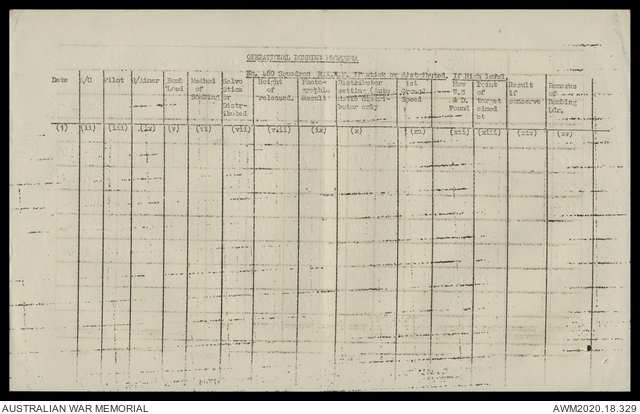 OPERATIONAL BOMBING PROFORMA
No. 460 Squadron R.A.A.F. If stick or distributed. If High level.
Date A/C Pilot B/Aimer Bomb Method Salvo Height Photo- Distributor 1st How Point Result Remarks
Load of Stick of graphic setting (auto- Ground W.S of if of
Bombing or released. Result matic distri- Speed & D. target conserve Bombing
Distr- butor only Found aimed Ldr.
ibuted at
(i) (ii) (iii) (iv) (v) (vi) (vii) (viii) (ix) (x) (xi) (xii) (xiii) (xiv) (xv)
AUSTRALIAN WAR MEMORIAL
AWM2020.18.329